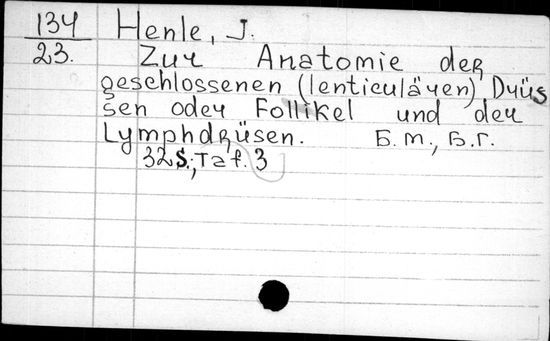 134 Henle, J.
23. Zur Anatomie der
geschlossenen (lenticulären) Drüs
sen oder Follikel und der
Lymphdrüsen. Б.м., Б.г.
32 S.; Taf. 3